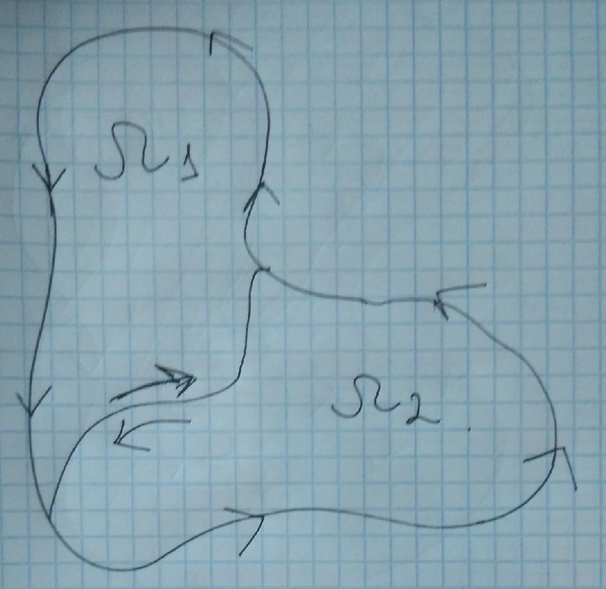 Ω₁
Ω₂.